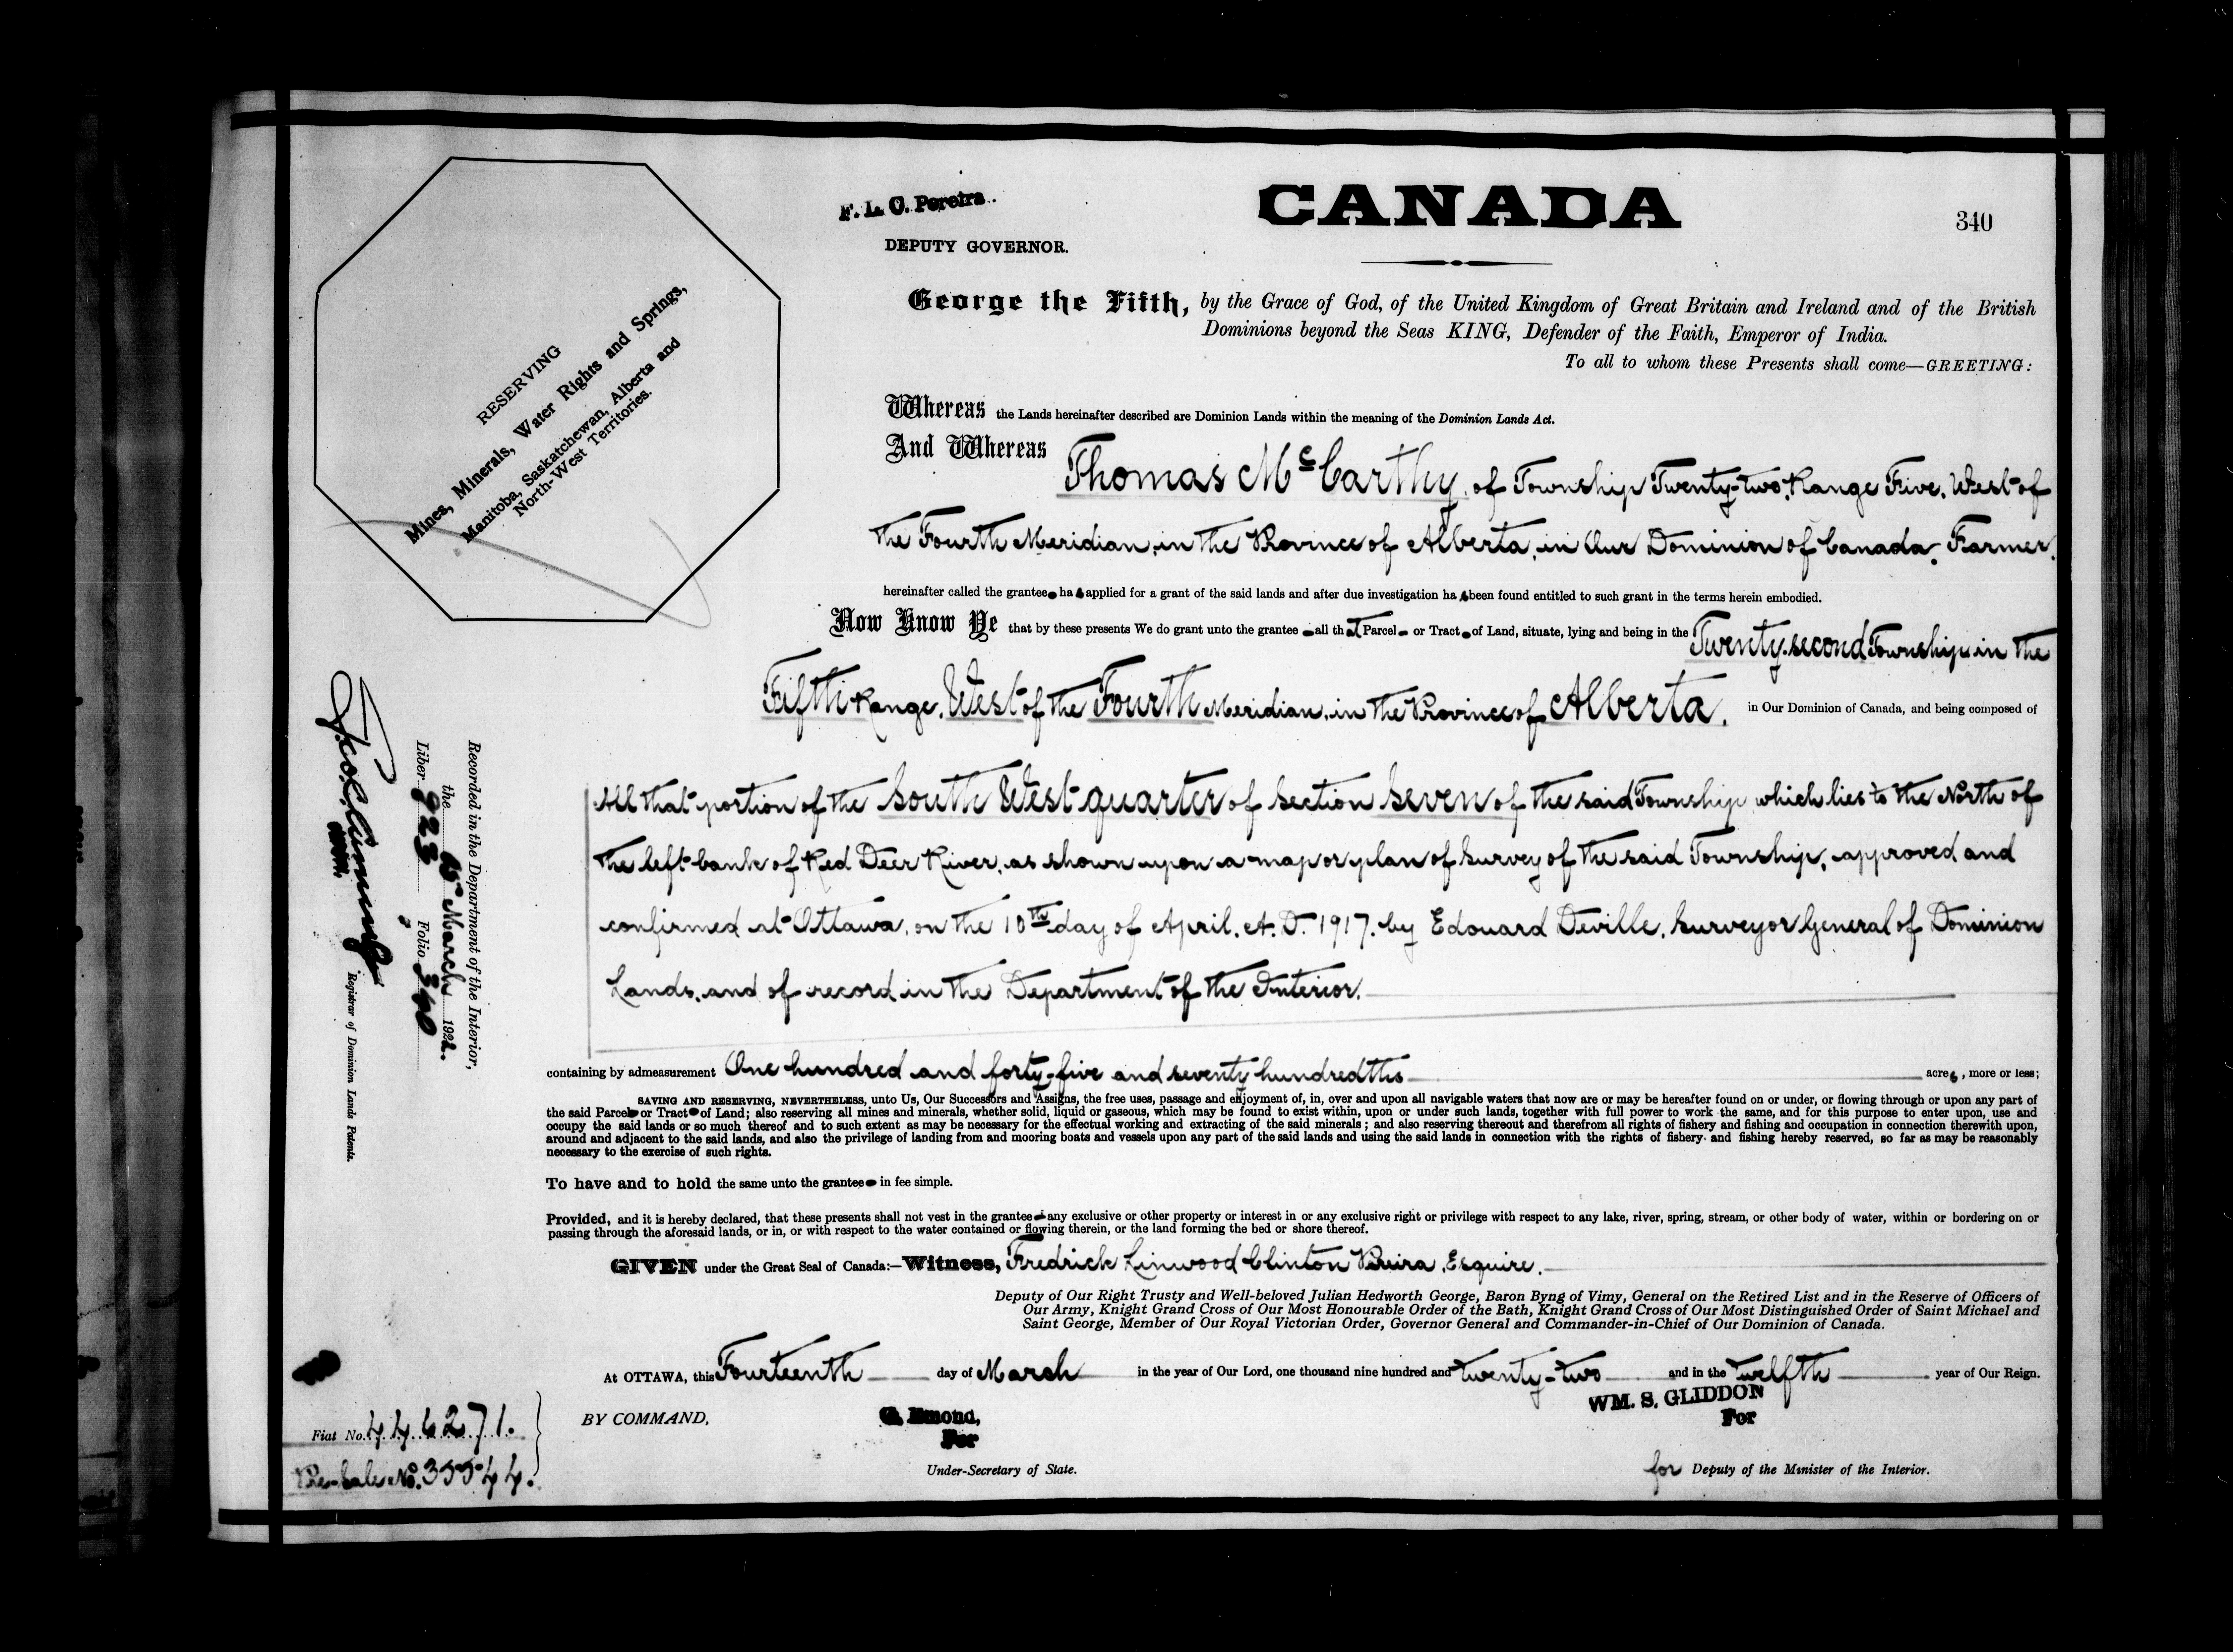 F. L. C. Pereira.
DEPUTY GOVERNOR.
CANADA
340
RESERVING
Mines, Minerals, Water Rights and Springs,
Manitoba, Saskatchewan, Alberta and
North-West Territories.
George the Fifth, by the Grace of God, of the United Kingdom of Great Britain and Ireland and of the British
Dominions beyond the Seas KING, Defender of the Faith, Emperor of India.
To all to whom these Presents shall come—GREETING:
Whereas the Lands hereinafter described are Dominion Lands within the meaning of the Dominion Lands Act.
And Whereas Thomas McCarthy, of Township Twenty-two, Range Five, West of
the Fourth Meridian, in the Province of Alberta, in Our Dominion of Canada, Farmer,
hereinafter called the grantee has applied for a grant of the said lands and after due investigation has been found entitled to such grant in the terms herein embodied.
Now Know Ye that by these presents We do grant unto the grantee all that Parcel or Tract of Land, situate, lying and being in the Twenty-second Township in the
Fifth Range, West of the Fourth Meridian, in the Province of Alberta, in Our Dominion of Canada, and being composed of
All that portion of the South West quarter of Section Seven of the said Township which lies to the North of
the left bank of Red Deer River, as shown upon a map or plan of Survey of the said Township, approved and
confirmed at Ottawa, on the 10th day of April, A.D. 1917, by Edouard Deville, Surveyor General of Dominion
Lands, and of record in the Department of the Interior.
containing by admeasurement One hundred and forty-five and seventy hundredths acres, more or less;
SAVING AND RESERVING, NEVERTHELESS, unto Us, Our Successors and Assigns, the free uses, passage and enjoyment of, in, over and upon all navigable waters that now are or may be hereafter found on or under, or flowing through or upon any part of
the said Parcel or Tract of Land; also reserving all mines and minerals, whether solid, liquid or gaseous, which may be found to exist within, upon or under such lands, together with full power to work the same, and for this purpose to enter upon, use and
occupy the said lands or so much thereof and to such extent as may be necessary for the effectual working and extracting of the said minerals; and also reserving thereout and therefrom all rights of fishery and fishing and occupation in connection therewith upon,
around and adjacent to the said lands, and also the privilege of landing from and mooring boats and vessels upon any part of the said lands and using the said lands in connection with the rights of fishery and fishing hereby reserved, so far as may be reasonably
necessary to the exercise of such rights.
To have and to hold the same unto the grantee in fee simple.
Provided, and it is hereby declared, that these presents shall not vest in the grantee any exclusive or other property or interest in or any exclusive right or privilege with respect to any lake, river, spring, stream, or other body of water, within or bordering on or
passing through the aforesaid lands, or in, or with respect to the water contained or flowing therein, or the land forming the bed or shore thereof.
GIVEN under the Great Seal of Canada:—Witness, Fredrick Linwood Clinton Pereira, Esquire,
Deputy of Our Right Trusty and Well-beloved Julian Hedworth George, Baron Byng of Vimy, General on the Retired List and in the Reserve of Officers of
Our Army, Knight Grand Cross of Our Most Honourable Order of the Bath, Knight Grand Cross of Our Most Distinguished Order of Saint Michael and
Saint George, Member of Our Royal Victorian Order, Governor General and Commander-in-Chief of Our Dominion of Canada.
At OTTAWA, this Fourteenth day of March in the year of Our Lord, one thousand nine hundred and twenty-two and in the Twelfth year of Our Reign.
BY COMMAND,
G. Emond,
For
Under-Secretary of State.
WM. S. GLIDDON
For
for Deputy of the Minister of the Interior.
Recorded in the Department of the Interior,
the March 1922.
Liber 823 Folio 340
Registrar of Dominion Lands Patents.
Fiat No. 446271.
Pre-Sale No. 35544.